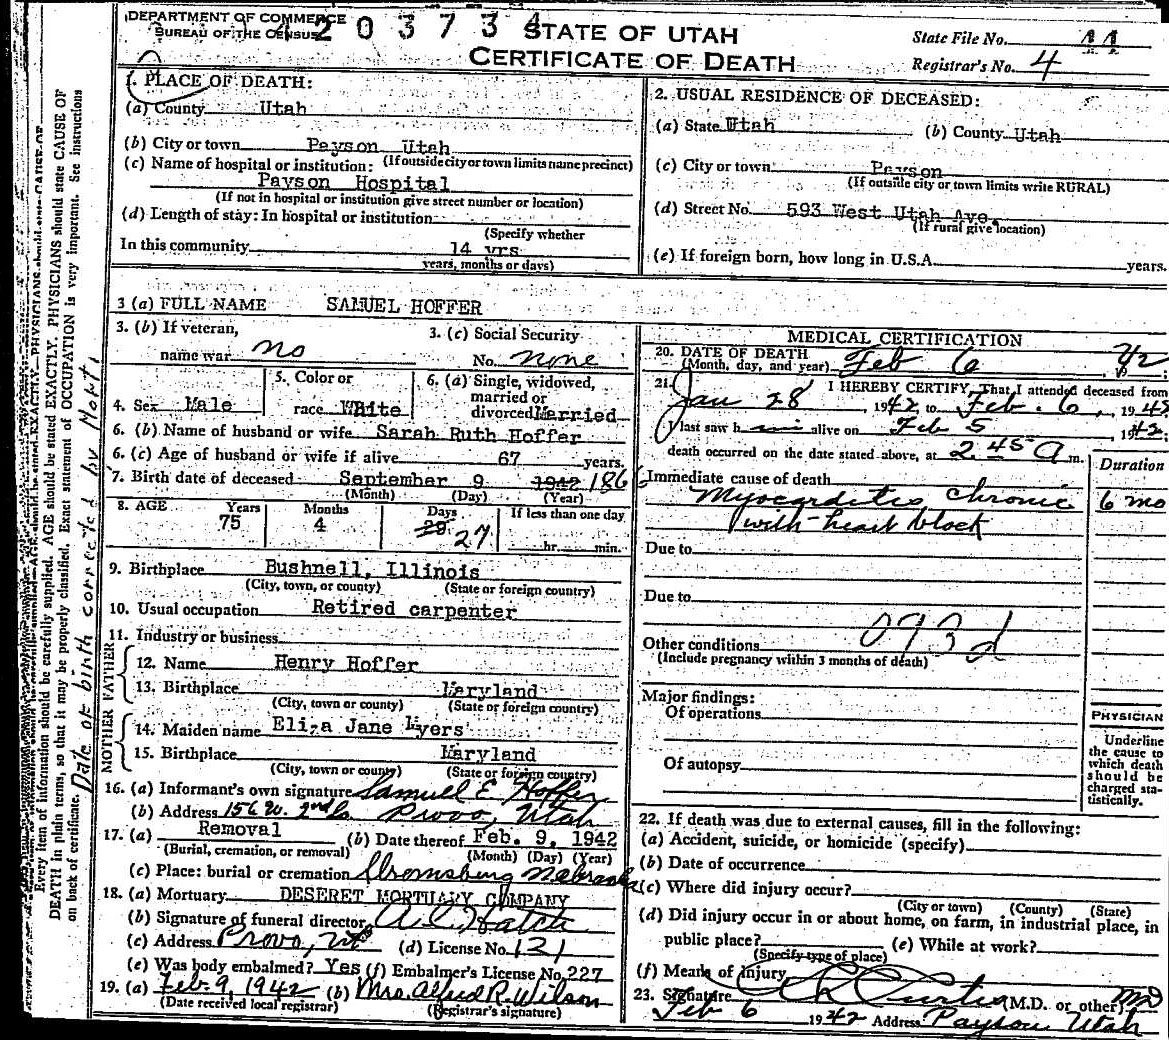 DEPARTMENT OF COMMERCE
BUREAU OF THE CENSUS
203734
STATE OF UTAH
CERTIFICATE OF DEATH
State File No. 11
Registrar's No. 4
1. PLACE OF DEATH:
(a) County Utah
(b) City or town Payson Utah
(If outside city or town limits name precinct)
(c) Name of hospital or institution:
Payson Hospital
(If not in hospital or institution give street number or location)
(d) Length of stay: In hospital or institution
(Specify whether
In this community 14 yrs
years, months or days)
2. USUAL RESIDENCE OF DECEASED:
(a) State Utah (b) County Utah
(c) City or town Payson
(If outside city or town limits write RURAL)
(d) Street No. 593 West Utah Ave.
(If rural give location)
(e) If foreign born, how long in U.S.A. years.
3 (a) FULL NAME SAMUEL HOFFER
3. (b) If veteran, name war no
3. (c) Social Security No. none
4. Sex Male
5. Color or race White
6. (a) Single, widowed, married or divorced Married
6. (b) Name of husband or wife Sarah Ruth Hoffer
6. (c) Age of husband or wife if alive 67 years.
7. Birth date of deceased September 9 1942 186
(Month) (Day) (Year)
8. AGE Years 75 Months 4 Days 29 27 If less than one day hr. min.
9. Birthplace Bushnell, Illinois
(City, town, or county) (State or foreign country)
10. Usual occupation Retired carpenter
11. Industry or business
FATHER
12. Name Henry Hoffer
13. Birthplace Maryland
(City, town or county) (State or foreign country)
MOTHER
14. Maiden name Eliza Jane Myers
15. Birthplace Maryland
(City, town or county) (State or foreign country)
16. (a) Informant's own signature Samuel E Hoffer
(b) Address 156 W. 2nd So Provo, Utah
17. (a) Removal (b) Date thereof Feb. 9, 1942
(Burial, cremation, or removal) (Month) (Day) (Year)
(c) Place: burial or cremation Stromsburg Nebraska
18. (a) Mortuary DESERET MORTUARY COMPANY
(b) Signature of funeral director A. L. Hatch
(c) Address Provo, Ut (d) License No. 121
(e) Was body embalmed? Yes (f) Embalmer's License No. 227
19. (a) Feb. 9, 1942 (b) Mrs. Alfred R. Wilson
(Date received local registrar) (Registrar's signature)
MEDICAL CERTIFICATION
20. DATE OF DEATH
(Month, day, and year) Feb 6 42
21. I HEREBY CERTIFY, That I attended deceased from
Jan 28, 1942 to Feb. 6, 1942
I last saw him alive on Feb 5, 1942
death occurred on the date stated above, at 2.45 a m.
Duration
Immediate cause of death
Myocarditis chronic 6 mo
with heart block
Due to
Due to
093d
Other conditions
(Include pregnancy within 3 months of death)
Major findings:
Of operations
Of autopsy
PHYSICIAN
Underline
the cause to
which death
should be
charged sta-
tistically.
22. If death was due to external causes, fill in the following:
(a) Accident, suicide, or homicide (specify)
(b) Date of occurrence
(c) Where did injury occur?
(City or town) (County) (State)
(d) Did injury occur in or about home, on farm, in industrial place, in
public place? (e) While at work?
(Specify type of place)
(f) Means of injury
23. Signature Curtis (M.D. or other) MD
Feb 6 1942 Address Payson Utah
Every item of information should be carefully supplied. AGE should be stated EXACTLY. PHYSICIANS should state CAUSE OF
DEATH in plain terms, so that it may be properly classified. Exact statement of OCCUPATION is very important. See instructions
on back of certificate. Date of birth corrected by Mort.